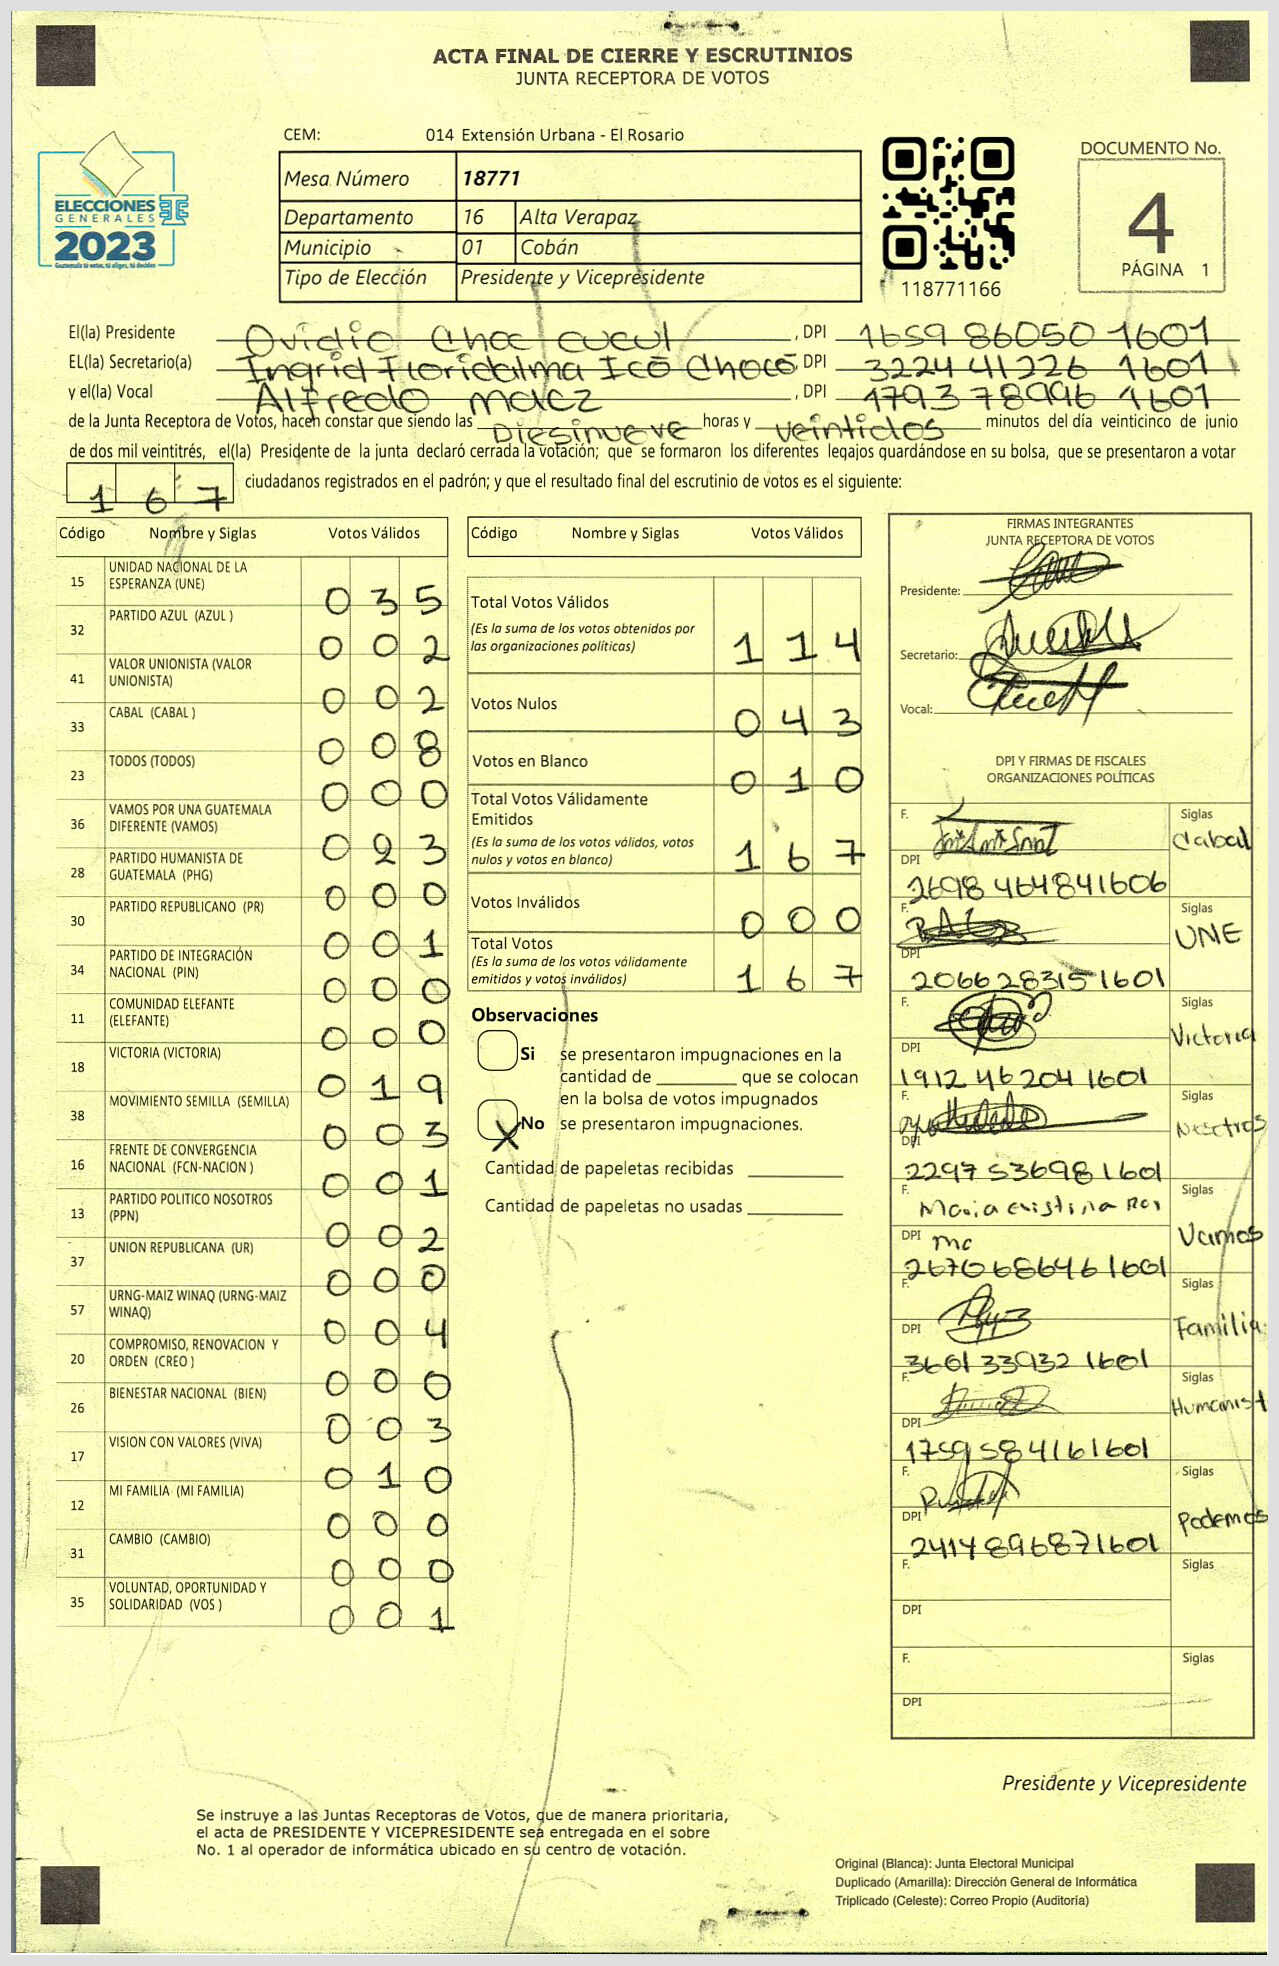 ACTA FINAL DE CIERRE Y ESCRUTINIOS
JUNTA RECEPTORA DE VOTOS
CEM: 014 Extensión Urbana - El Rosario
ELECCIONES
GENERALES
2023
Guatemala tú votas, tú eliges, tú decides
Mesa Número 18771
Departamento 16 Alta Verapaz
Municipio 01 Cobán
Tipo de Elección Presidente y Vicepresidente
118771166
DOCUMENTO No.
4
PÁGINA 1
El(la) Presidente Ovidio Choc cucul , DPI 1659 86050 1601
EL(la) Secretario(a) Ingrid Floridalma Icó Chocó, DPI 3224 41226 1601
y el(la) Vocal Alfredo , DPI 1793 78996 1601
de la Junta Receptora de Votos, hacen constar que siendo las Diesinueve horas y veintidos minutos del día veinticinco de junio
de dos mil veintitrés, el(la) Presidente de la junta declaró cerrada la votación; que se formaron los diferentes legajos guardándose en su bolsa, que se presentaron a votar
167 ciudadanos registrados en el padrón; y que el resultado final del escrutinio de votos es el siguiente:
Código Nombre y Siglas Votos Válidos
15 UNIDAD NACIONAL DE LA ESPERANZA (UNE) 035
32 PARTIDO AZUL (AZUL ) 002
41 VALOR UNIONISTA (VALOR UNIONISTA) 002
33 CABAL (CABAL ) 008
23 TODOS (TODOS) 000
36 VAMOS POR UNA GUATEMALA DIFERENTE (VAMOS) 023
28 PARTIDO HUMANISTA DE GUATEMALA (PHG) 000
30 PARTIDO REPUBLICANO (PR) 001
34 PARTIDO DE INTEGRACIÓN NACIONAL (PIN) 000
11 COMUNIDAD ELEFANTE (ELEFANTE) 000
18 VICTORIA (VICTORIA) 019
38 MOVIMIENTO SEMILLA (SEMILLA) 003
16 FRENTE DE CONVERGENCIA NACIONAL (FCN-NACION ) 001
13 PARTIDO POLITICO NOSOTROS (PPN) 002
37 UNION REPUBLICANA (UR) 000
57 URNG-MAIZ WINAQ (URNG-MAIZ WINAQ) 004
20 COMPROMISO, RENOVACION Y ORDEN (CREO ) 000
26 BIENESTAR NACIONAL (BIEN) 003
17 VISION CON VALORES (VIVA) 010
12 MI FAMILIA (MI FAMILIA) 000
31 CAMBIO (CAMBIO) 000
35 VOLUNTAD, OPORTUNIDAD Y SOLIDARIDAD (VOS ) 001
Código Nombre y Siglas Votos Válidos
Total Votos Válidos 114
(Es la suma de los votos obtenidos por
las organizaciones políticas)
Votos Nulos 043
Votos en Blanco 010
Total Votos Válidamente
Emitidos 167
(Es la suma de los votos válidos, votos
nulos y votos en blanco)
Votos Inválidos 000
Total Votos 167
(Es la suma de los votos válidamente
emitidos y votos inválidos)
Observaciones
Si se presentaron impugnaciones en la
cantidad de ________ que se colocan
en la bolsa de votos impugnados
X No se presentaron impugnaciones.
Cantidad de papeletas recibidas
Cantidad de papeletas no usadas
FIRMAS INTEGRANTES
JUNTA RECEPTORA DE VOTOS
Presidente:
Secretario:
Vocal:
DPI Y FIRMAS DE FISCALES
ORGANIZACIONES POLÍTICAS
F. Siglas Cabal
DPI 2698 464841606
F. Siglas UNE
DPI 2066 283151601
F. Siglas Victoria
DPI 1912 46204 1601
F. Siglas Nosotros
DPI 2297 53698 1601
F. Maria cristina Siglas Vamos
DPI 2670686461601
F. Siglas Familia
DPI 3601 33932 1601
F. Siglas Humanist
DPI 1759584161601
F. Siglas Podemos
DPI 2414896871601
F. Siglas
DPI
F. Siglas
DPI
Presidente y Vicepresidente
Se instruye a las Juntas Receptoras de Votos, que de manera prioritaria,
el acta de PRESIDENTE Y VICEPRESIDENTE sea entregada en el sobre
No. 1 al operador de informática ubicado en su centro de votación.
Original (Blanca): Junta Electoral Municipal
Duplicado (Amarilla): Dirección General de Informática
Triplicado (Celeste): Correo Propio (Auditoría)